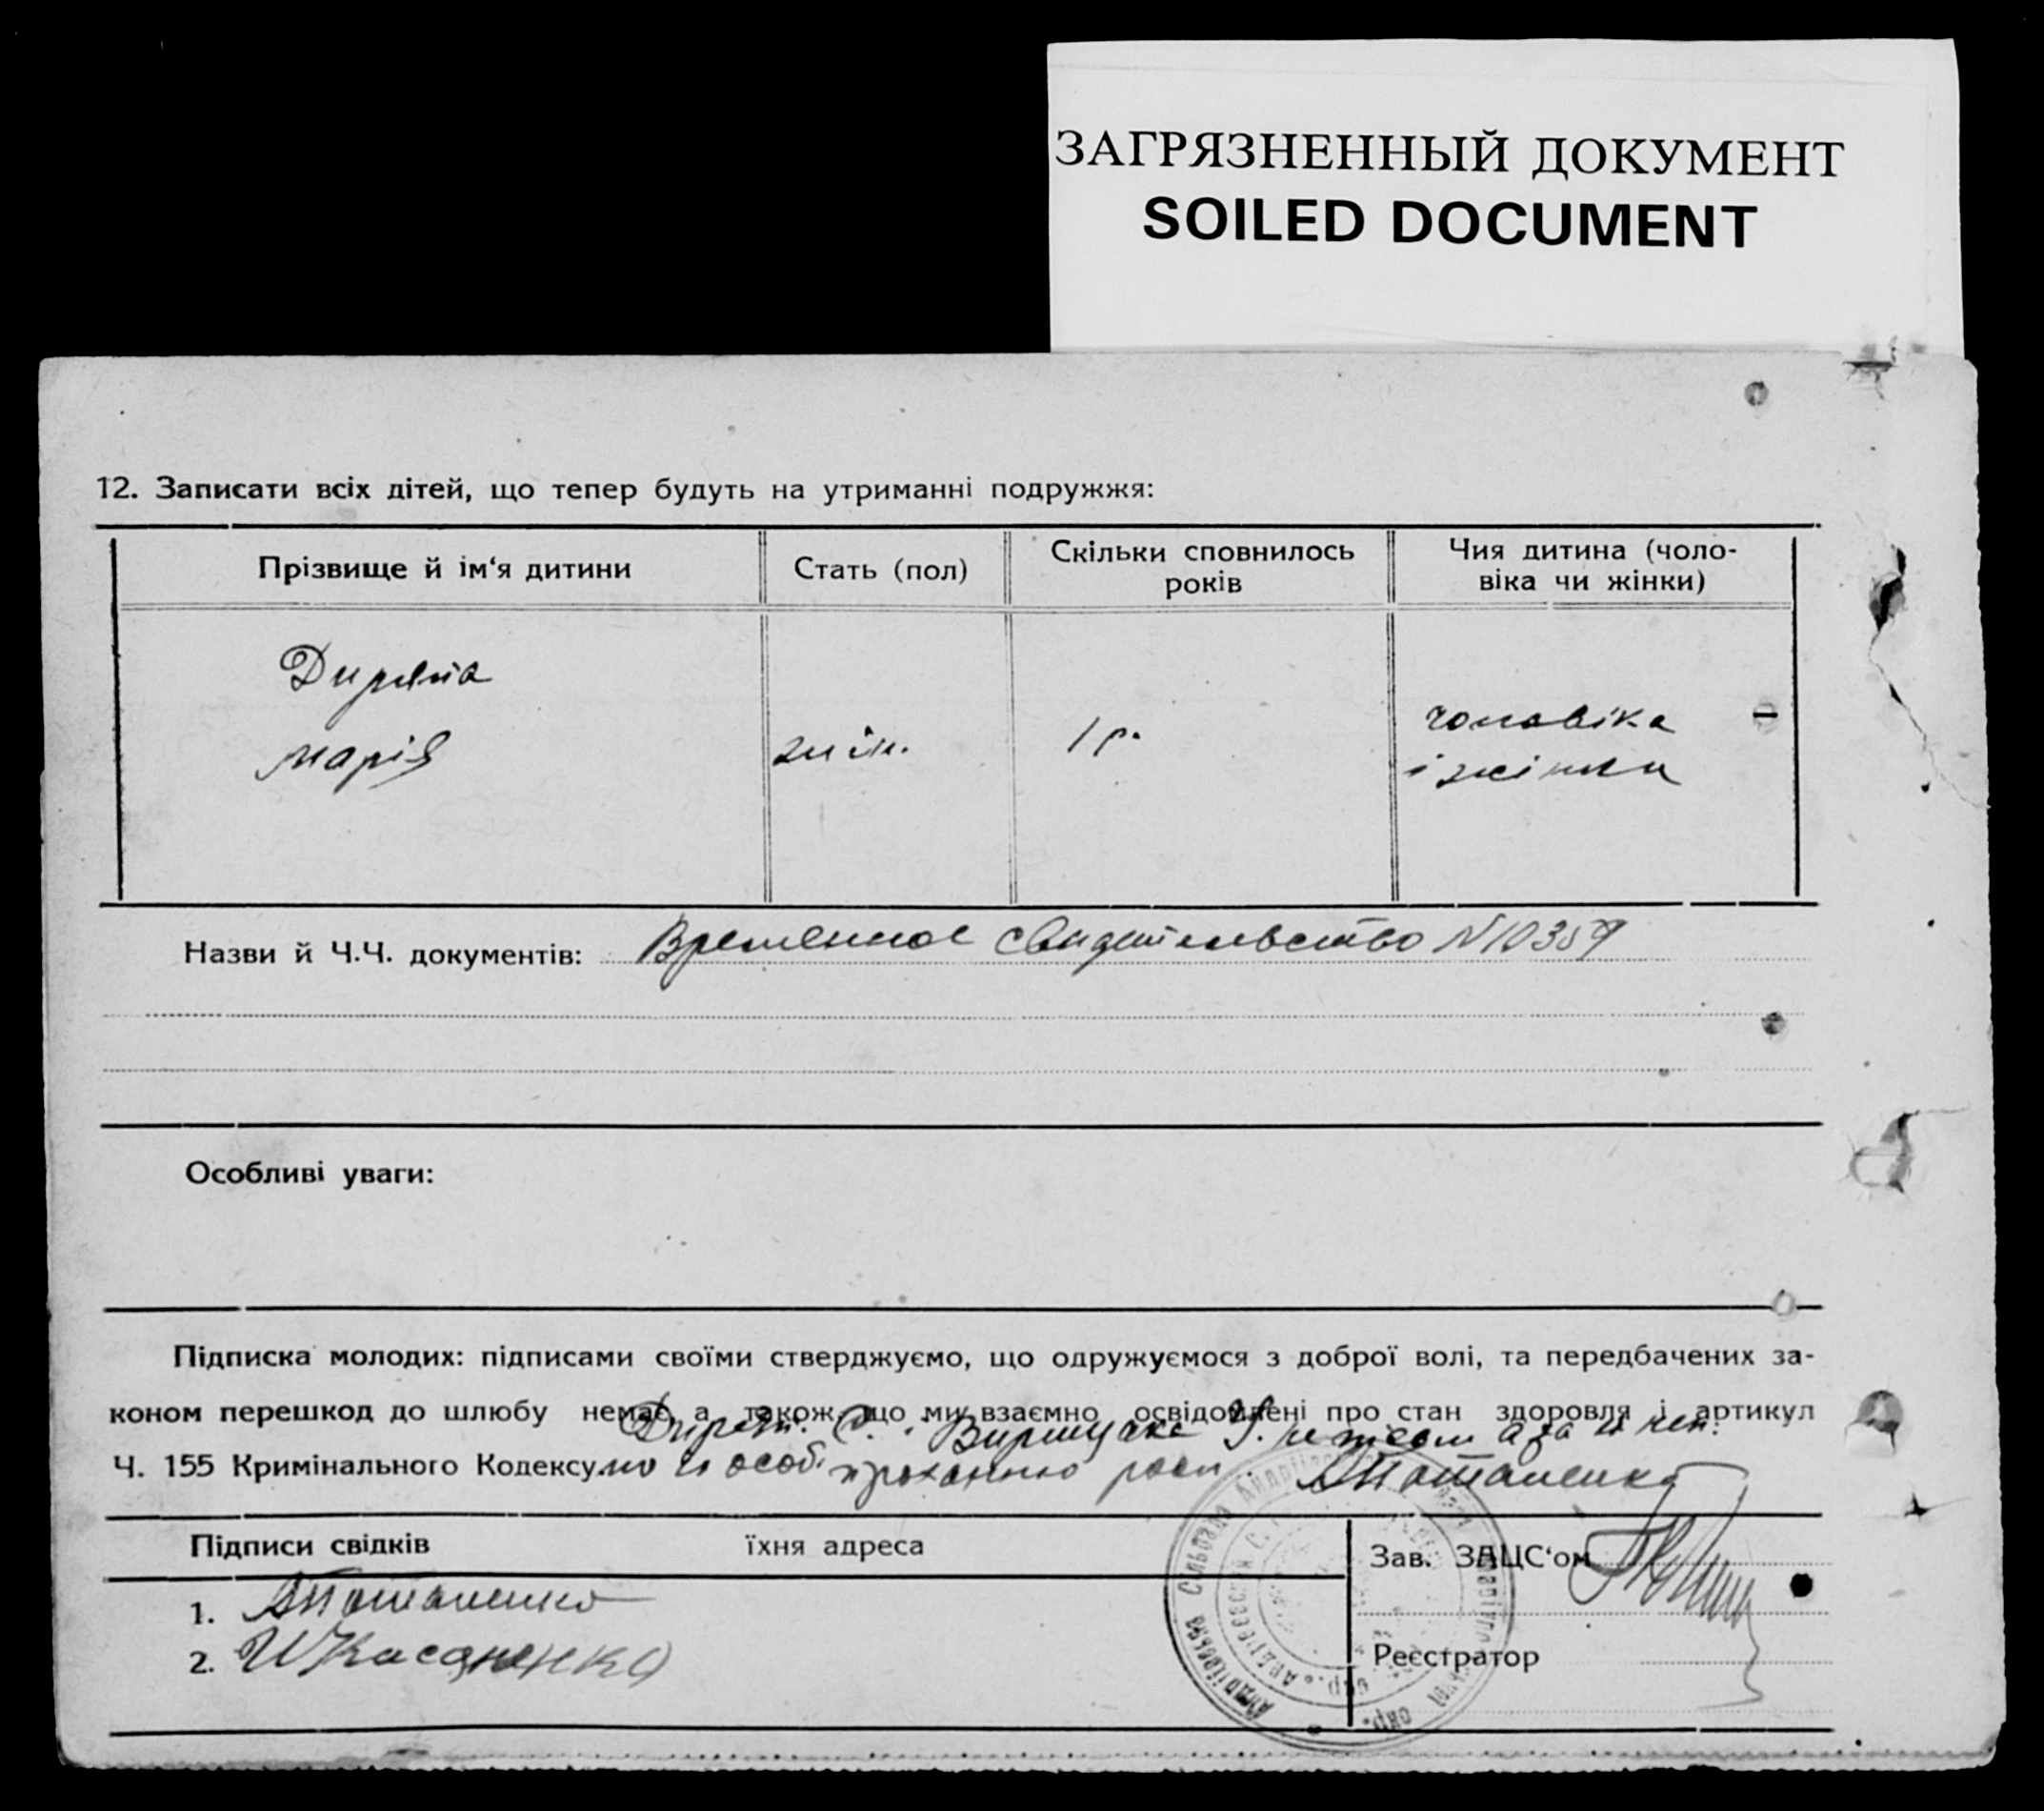 ЗАГРЯЗНЕННЫЙ ДОКУМЕНТ
SOILED DOCUMENT
12. Записати всіх дітей, що тепер будуть на утриманні подружжя:
Прізвище й ім‘я дитини
Стать (пол)
Скільки сповнилось
років
Чия дитина (чоло-
віка чи жінки)
Марія
жін.
1 р.
чоловіка
і жінки
Назви й Ч.Ч. документів: Временное свидетельство N 10359
Особливі уваги:
Підписка молодих: підписами своїми стверджуємо, що одружуємося з доброї волі, та передбачених за-
коном перешкод до шлюбу немає, а також, що ми взаємно освідомлені про стан здоровля і артикул
Ч. 155 Кримінального Кодексу
Потапенко
Підписи свідків
їхня адреса
Зав. ЗАЦС‘ом
1. Потапенко
2.
Реєстратор